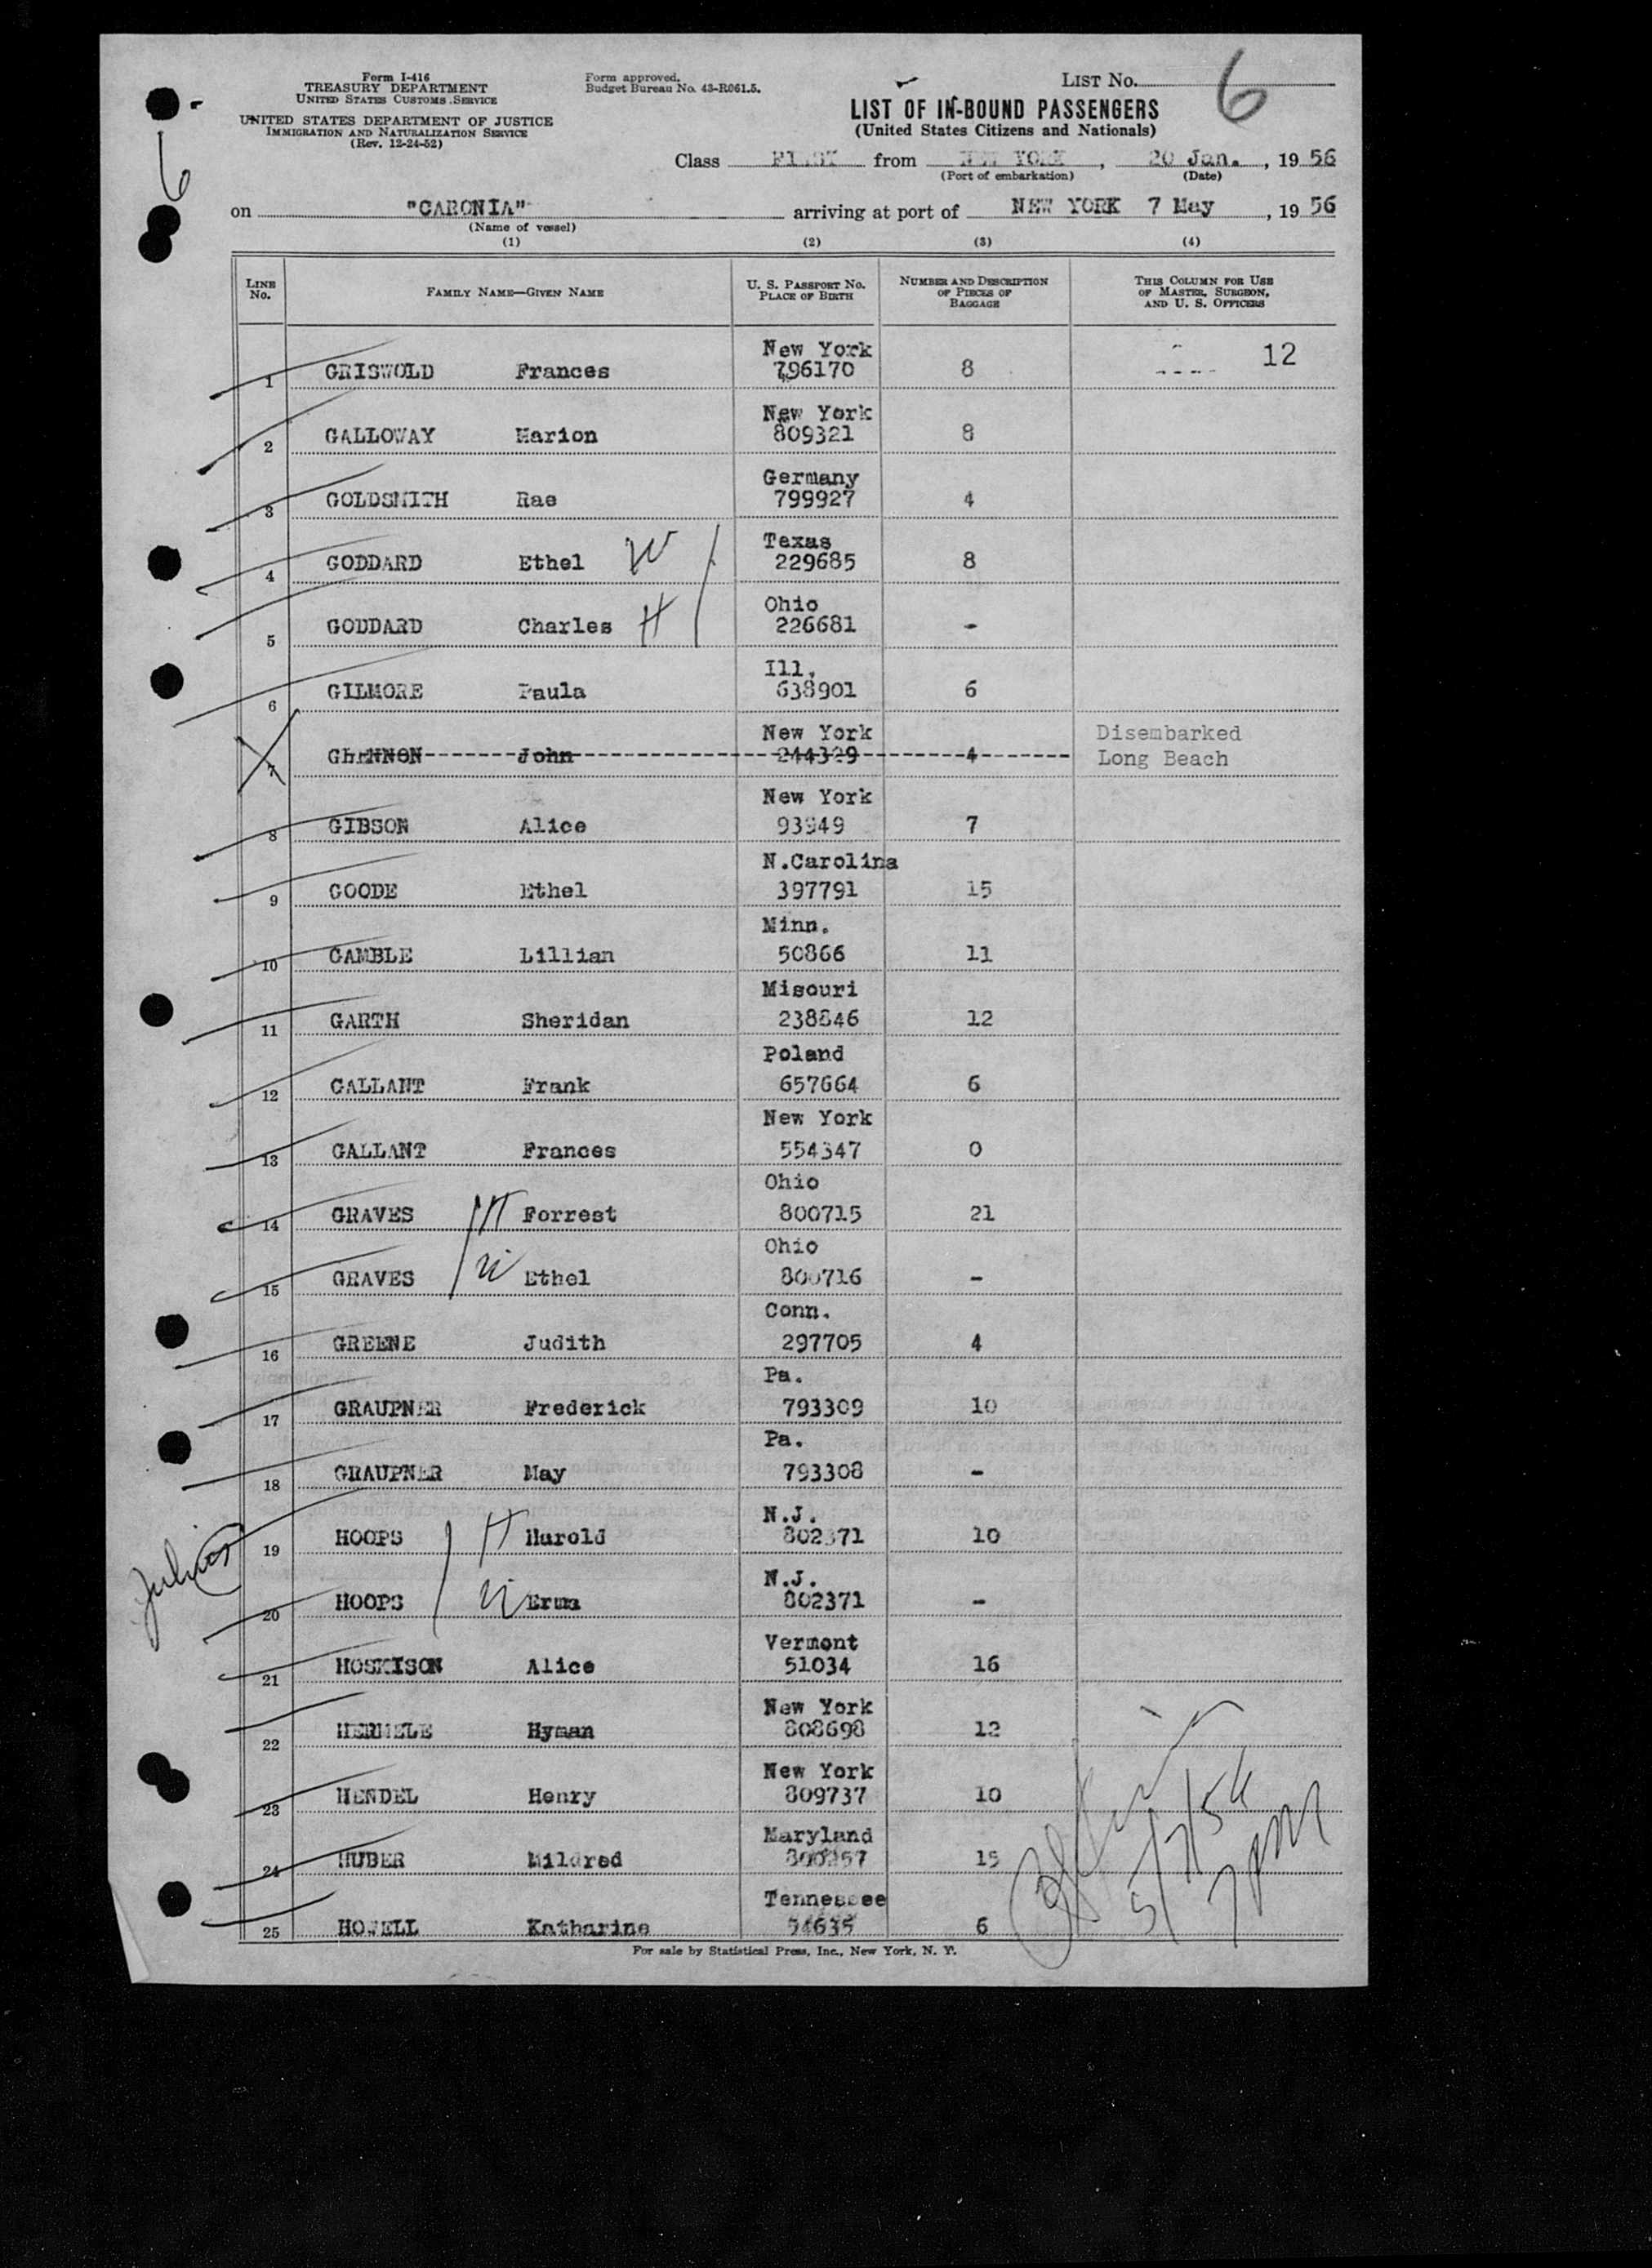 Form I-416
TREASURY DEPARTMENT
UNITED STATES CUSTOMS SERVICE
UNITED STATES DEPARTMENT OF JUSTICE
IMMIGRATION AND NATURALIZATION SERVICE
(Rev. 12-24-52)
Form approved.
Budget Bureau No. 43-R061.5.
LIST No. 6
LIST OF IN-BOUND PASSENGERS
(United States Citizens and Nationals)
Class FIRST from NEW YORK, 20 Jan., 1956
(Port of embarkation) (Date)
on "CARONIA" arriving at port of NEW YORK 7 May, 1956
(Name of vessel)
(1) (2) (3) (4)
LINE No. FAMILY NAME—GIVEN NAME U. S. PASSPORT No. PLACE OF BIRTH NUMBER AND DESCRIPTION OF PIECES OF BAGGAGE THIS COLUMN FOR USE OF MASTER, SURGEON, AND U. S. OFFICERS
New York 12
1 GRISWOLD Frances 796170 8
New York
2 GALLOWAY Marion 809321 8
Germany
3 GOLDSMITH Rae 799927 4
Texas
4 GODDARD Ethel W 229685 8
Ohio
5 GODDARD Charles H 226681 -
Ill.
6 GILMORE Paula 638901 6
New York Disembarked
7 GLENNON John 244329 4 Long Beach
New York
8 GIBSON Alice 7
N.Carolina
9 GOODE Ethel 397791 15
Minn.
10 GAMBLE Lillian 50866 11
Misouri
11 GARTH Sheridan 238846 12
Poland
12 GALLANT Frank 657664 6
New York
13 GALLANT Frances 554347 0
Ohio
14 GRAVES H Forrest 800715 21
Ohio
15 GRAVES W Ethel 800716 -
Conn.
16 GREENE Judith 297705 4
Pa.
17 GRAUPNER Frederick 793309 10
Pa.
18 GRAUPNER May 793308 -
N.J.
19 HOOPS H Harold 802371 10
N.J.
20 HOOPS W Erma 802371 -
Vermont
21 HOSKISON Alice 51034 16
New York
22 Hyman 808698 12
New York
23 HENDEL Henry 809737 10
Maryland
24 HUBER Mildred 15
Tennessee
25 HOWELL Katharine 6
5/7/56
7 PM
For sale by Statistical Press, Inc., New York, N. Y.